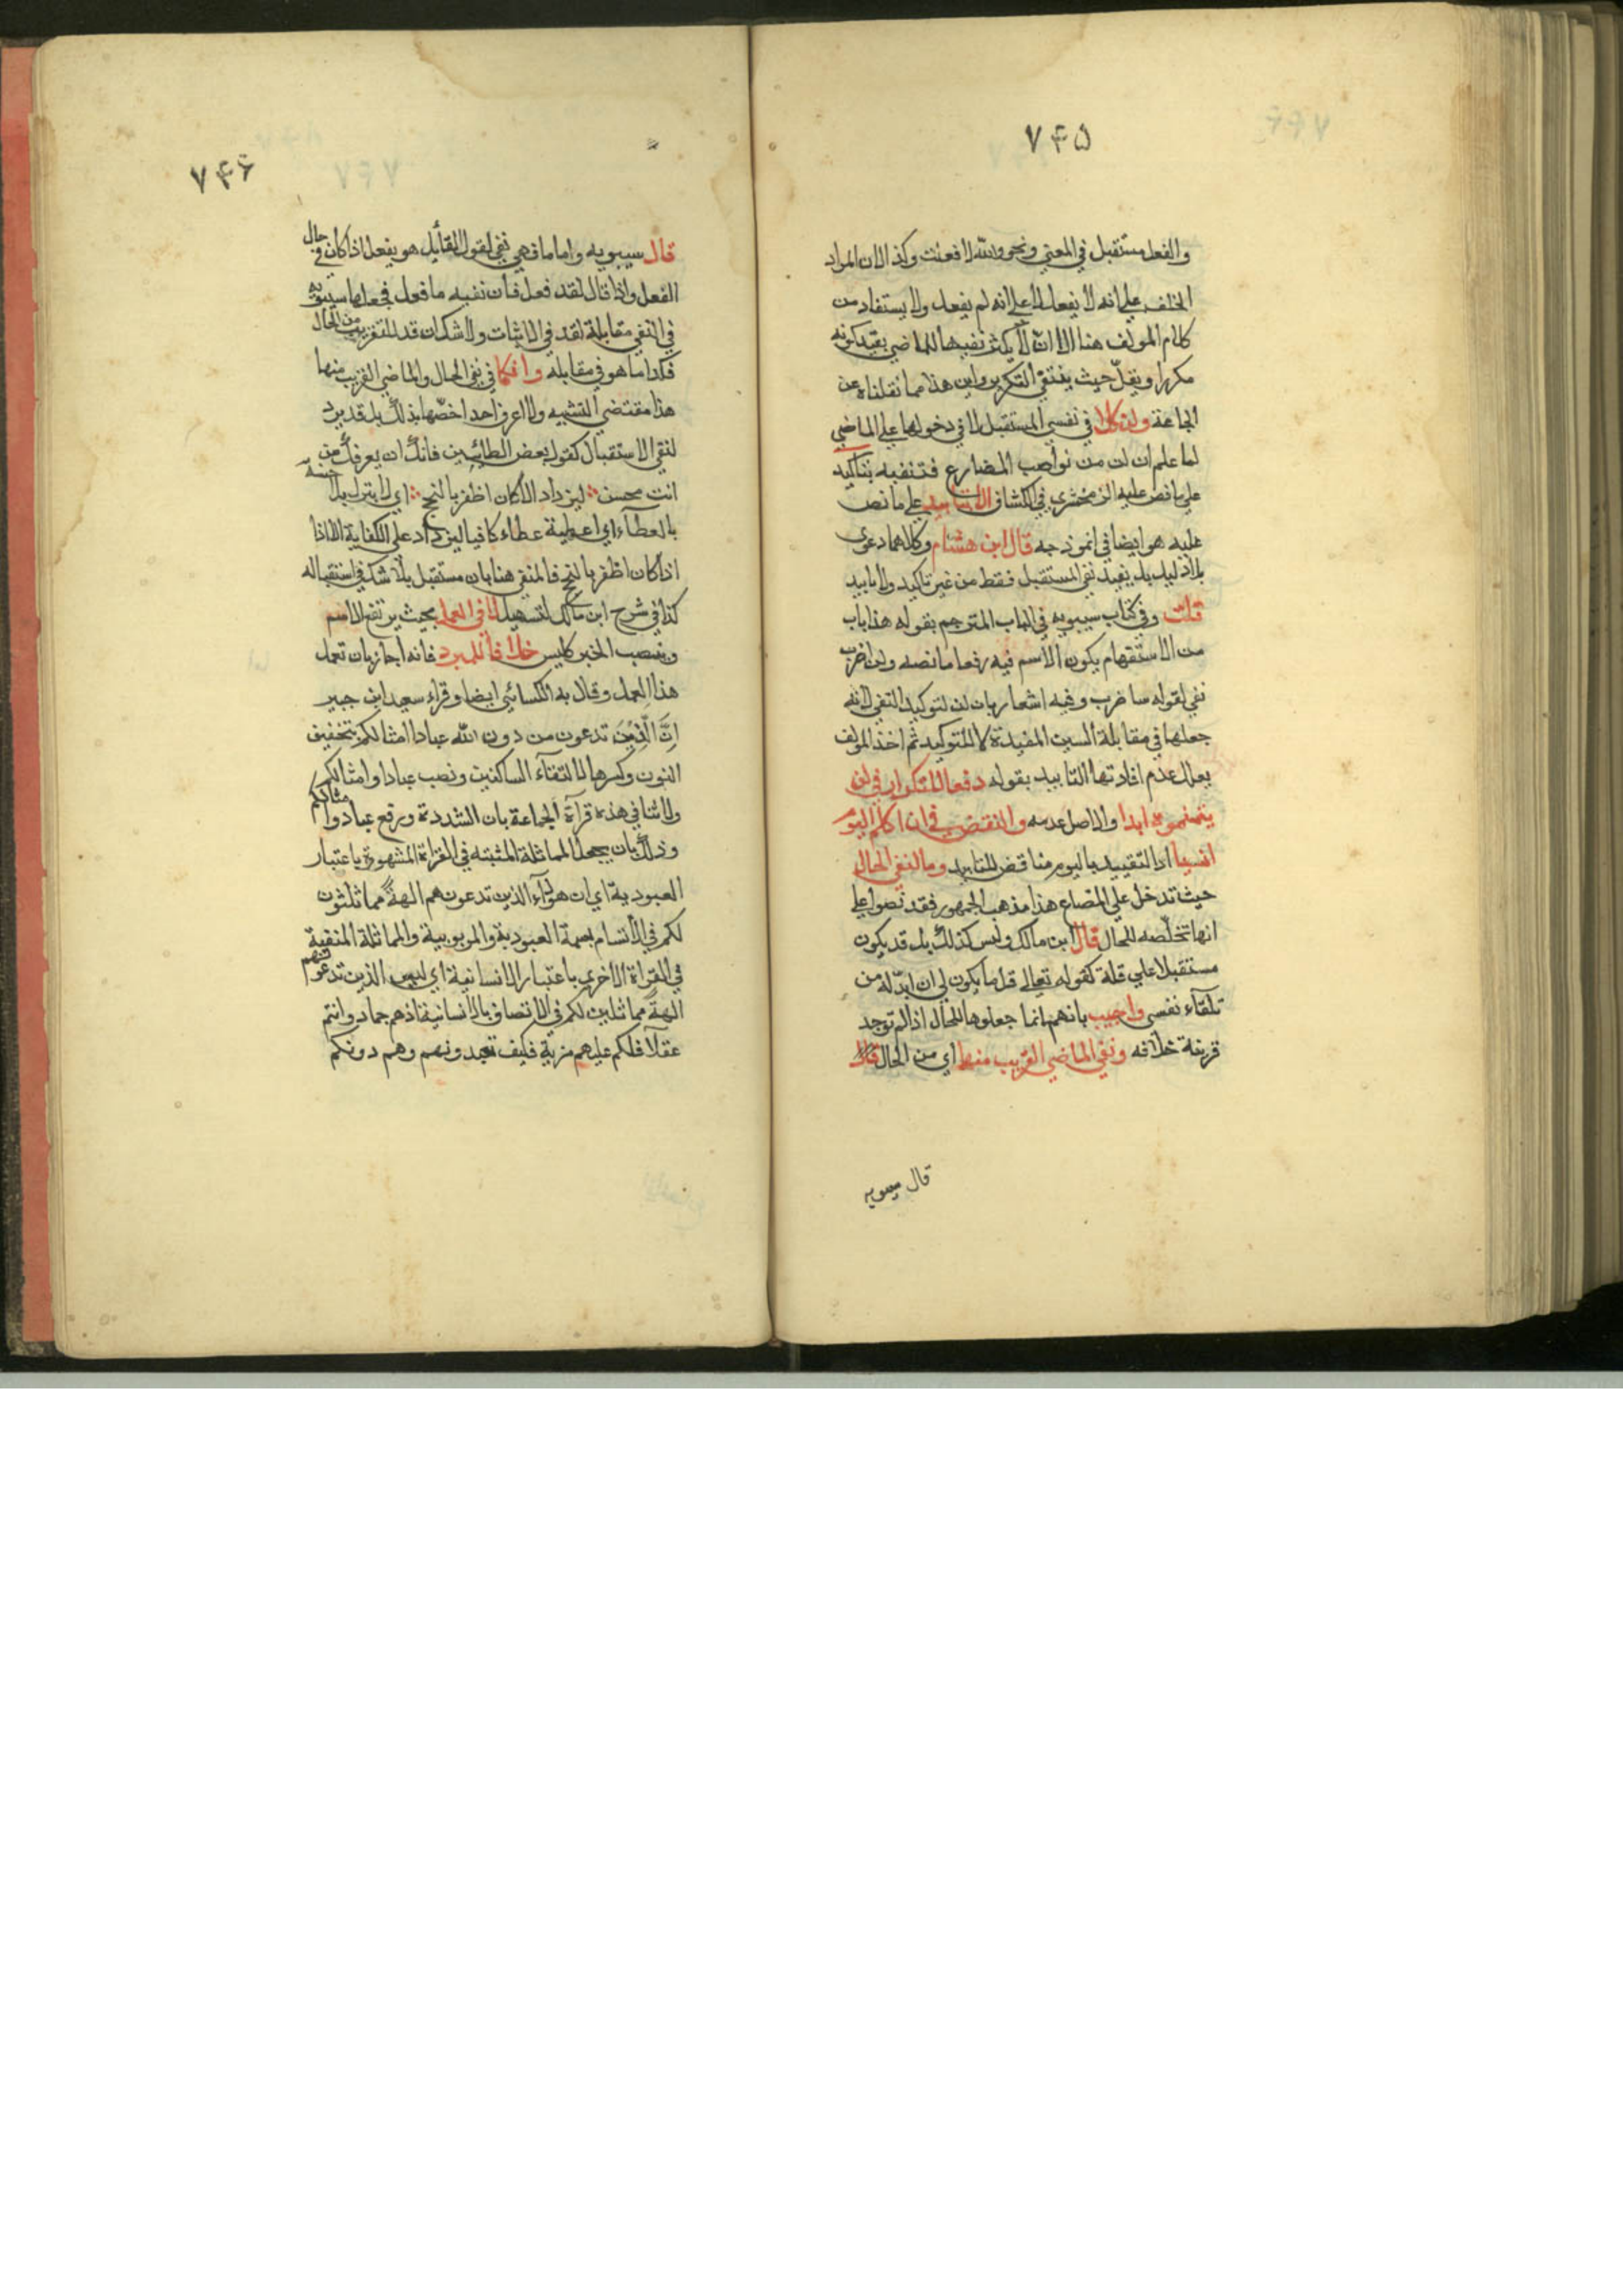 ٧٤٥
والفعل مستقبل في المعنى ونحو والله لا فعلت وكذا لان المراد
الحلف على انه لا يفعل لا على انه لم يفعل ولا يستفاد من
كلام المولف هنا الا انه لا يكثر نفيها للماضي بقيد كونه
مكررا ويقل حيث ينتفي التكرير واين هذا مما نقلناه عن
الجماعة ولن كلا في نفس المستقبل لا في دخولها على الماضي
لما علم ان لن من نواصب المضارع فتنفيه بتاكيد
على ما نص عليه الزمخشري في الكشاف لا تابيد على ما نص
عليه هو ايضا في انموذجه قال ابن هشام وكلاهما دعوى
بلا دليل بل يفيد نفي المستقبل فقط من غير تاكيد ولا تابيد
قلت وفي كتاب سيبويه في الباب المترجم بقوله هذا باب
من الاستفهام يكون الاسم فيه رفعا ما نصه ولن اضرب
نفي لقوله ساضرب وفيه اشعار بان لن لتوكيد النفي لانه
جعلها في مقابلة السين المفيدة للتوكيد ثم اخذ المولف
يعلل عدم افادتها التابيد بقوله دفعا للتكرار في لن
يتمنوه ابدا والاصل عدمه والنقض في لن اكلم اليوم
انسيا اذ التقييد باليوم مناقض للتابيد وما لنفي الحال
حيث تدخل على المضاع هذا مذهب الجمهور فقد نصوا على
انها تخلصه للحال قال ابن مالك وليس كذلك بل قد يكون
مستقبلا على قلة كقوله تعالى قل ما يكون لي ان ابدله من
تلقاء نفسي واجيب بانهم انما جعلوها للحال اذا لم توجد
قرينة خلافه ونفي الماضي القريب منها اي من الحال قال
قال سيبويه
٧٤٦
قال سيبويه واما ما فهي نفي لقول القائل هو يفعل اذا كان في حال
الفعل واذا قال لقد فعل فان نفيه ما فعل فجعلها سيبويه
في النفي مقابلة لقد في الاثبات ولا شك ان قد للتقريب من الحال
فكذا ما هو في مقابله وان كما في نفي الحال والماضي القريب منها
هذا مقتضى التشبيه ولا اعرف احدا خصها بذلك بل قد يرد
لنفي الاستقبال كقول بعض الطائيين فانك ان يعرفك من
انت محسن ليزداد الا كان اظفر بالنجح اي لا يترك بلا حسنة
بالعطاء اي اعطية عطاء كافيا ليزداد على الكفاية الا اذا
اذا كان اظفر بالنجح فالمنفي هنا بان مستقبل بلا شك في استقباله
كذا في شرح ابن مالك لتسهيل لا في العمل بحيث يرتفع الاسم
وينصب الخبر كليس خلافا للمبرد فانه اجاز بان تعمل
هذا العمل وقال به الكسائي ايضا وقراء سعيد ابن جبير
اِنَّ الَّذِينَ تدعون من دون الله عبادا امثالكم بتخفيف
النون وكسرها لالتقاء الساكنين ونصب عبادا وامثالكم
ولا تنافي هذه قراة الجماعة بان المشددة ورفع عباد وامثالكم
وذلك بان يجعل المماثلة المثبته في القراة المشهورة باعتبار
العبودية اي ان هؤلآء الذين تدعون هم الهة مماثلثون
لكم في الاتسام بسمة العبودية والمربوبية والمماثلة المنفية
في القراة الاخرى باعتبار الانسانية اي ليس الذين تدعونهم
الهة مماثلين لكم في الاتصاف بالانسانية اذ هم جماد وانتم
عقلآ فلكم عليهم مزية فكيف تعبدونهم وهم دونكم